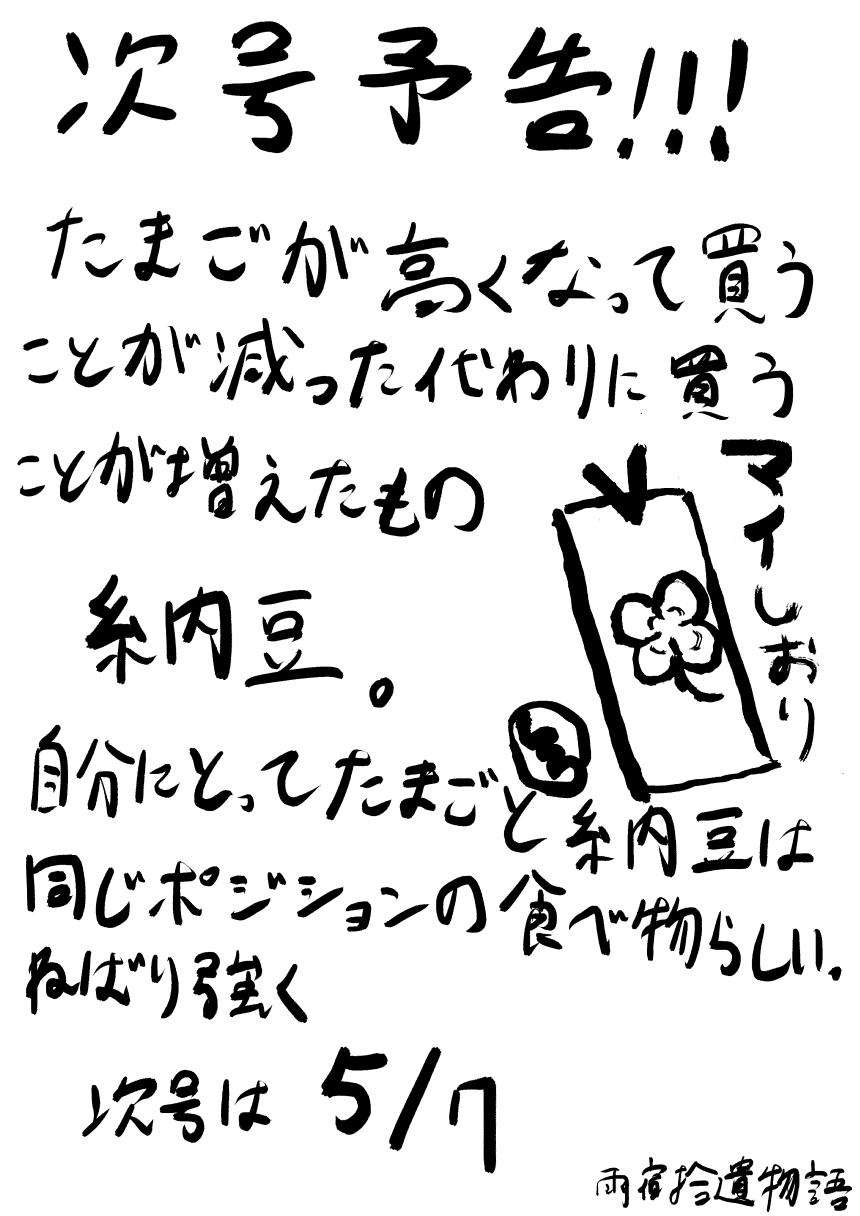 次号予告!!!
たまごが高くなって買う
ことが減った代わりに買う
ことが増えたもの
マイしおり
納豆。
自分にとってたまごと納豆は
同じポジションの食べ物らしい。
ねばり強く
次号は 5/7
雨宿拾遺物語